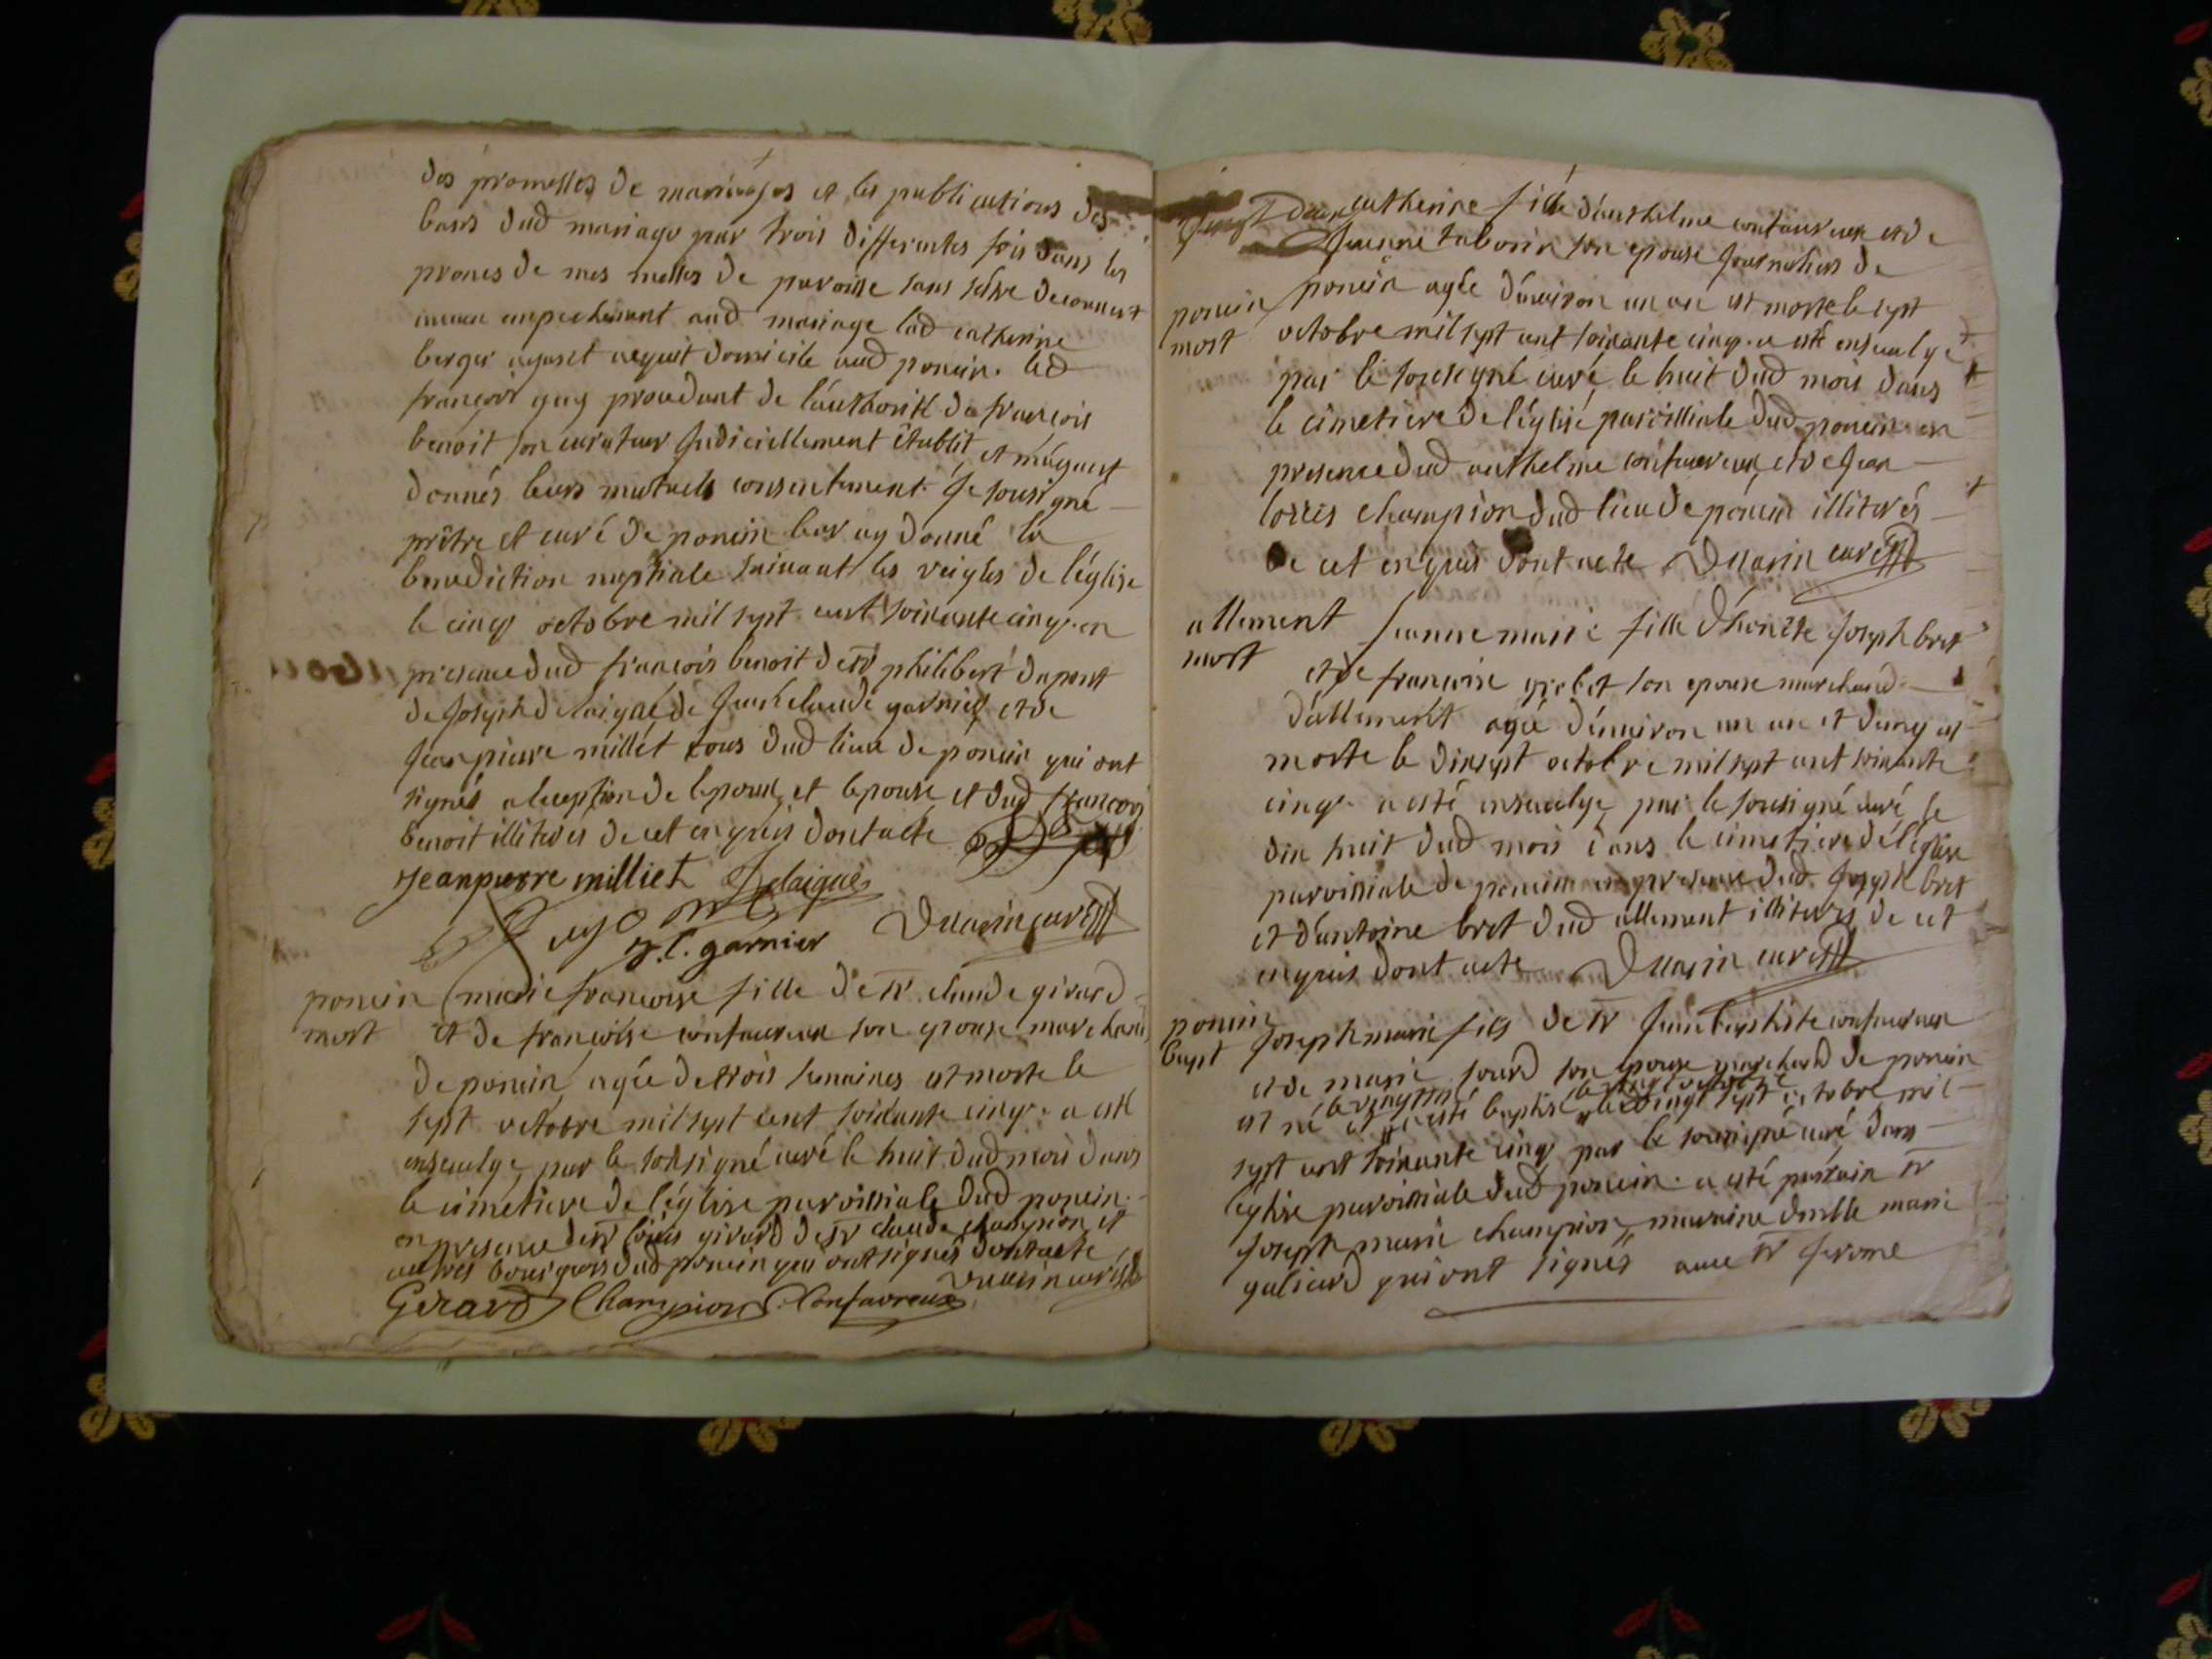 des promesses de mariages et les publications des
bans dud mariage par trois differentes fois dans les
prones de mes messes de paroisse sans s'estre decouvert
aucun empechement aud mariage lad catherine
berger ayant acquit domicile aud poncin. led
françois guy procedant de l'authorité de françois
benoit son curateur Judiciellement établit et m'ayant
donnés leurs mutuels consentement. Je sousigné
prêtre et curé de poncin leur ay donné la
benediction nuptiale suivant les reigles de l'église
le cinq octobre mil sept cent soixante cinq. en
presence dud françois benoit de sr philibert dupont
de Joseph delaigue de Jean claude garnier et de
Jean pierre millet tous dud lieu de poncin qui ont
signés a l'exeption de l'epoux et l'epouse et dud françois
benoit illiterés de cet enquis dont acte
Jeanpierre milliet J delaigue
J.C. garnier curé
poncin marie françoise fille de sr claude girard
mort et de françoise confavreux son epouse marchand
de poncin agée de trois semaines est morte le
sept octobre mil sept cent soixante cinq. a esté
ensevelye par le sousigné curé le huit dud mois dans
le cimetiere de l'église paroissiale dud poncin.
en presence de sr louis girard de sr claude champion et
autres bourgeois dud poncin qui ont signés dont acte
Girard Champion Confavreux curé
catherine fille d'anthelme confavreux et de
Jeanne tabouin son epouse Journaliers de
poncin poncin agée d'environ un an est morte le sept
mort octobre mil sept cent soixante cinq. a esté ensevelye
par le sousigné curé le huit dud mois dans
le cimetiere de l'église paroissiale dud poncin en
presence dud anthelme confavreux et de Jean
louis champion dud lieu de poncin illiterés
de cet enquis dont acte curé
allement Jeanne marie fille d'honête Joseph bret
mort et de françoise grobet son epouse marchand
d'allement agée d'environ un an et demy est
morte le dix sept octobre mil sept cent soixante
cinq. a esté ensevelye par le sousigné curé le
dix huit dud mois dans le cimetiere de l'église
paroissiale de poncin en presence dud Joseph bret
et d'antoine bret dud allement illiterés de cet
enquis dont acte curé
poncin Joseph marie fils de sr Jean baptiste confavreux
bapt et de marie sourd son epouse marchand de poncin
est né et a esté baptisé vingt sept octobre mil
sept cent soixante cinq par le sousigné curé dans
l'église paroissiale dud poncin. a esté parrain sr
Joseph marie champion, marraine dmlle marie
galiard qui ont signés avec sr Jerome